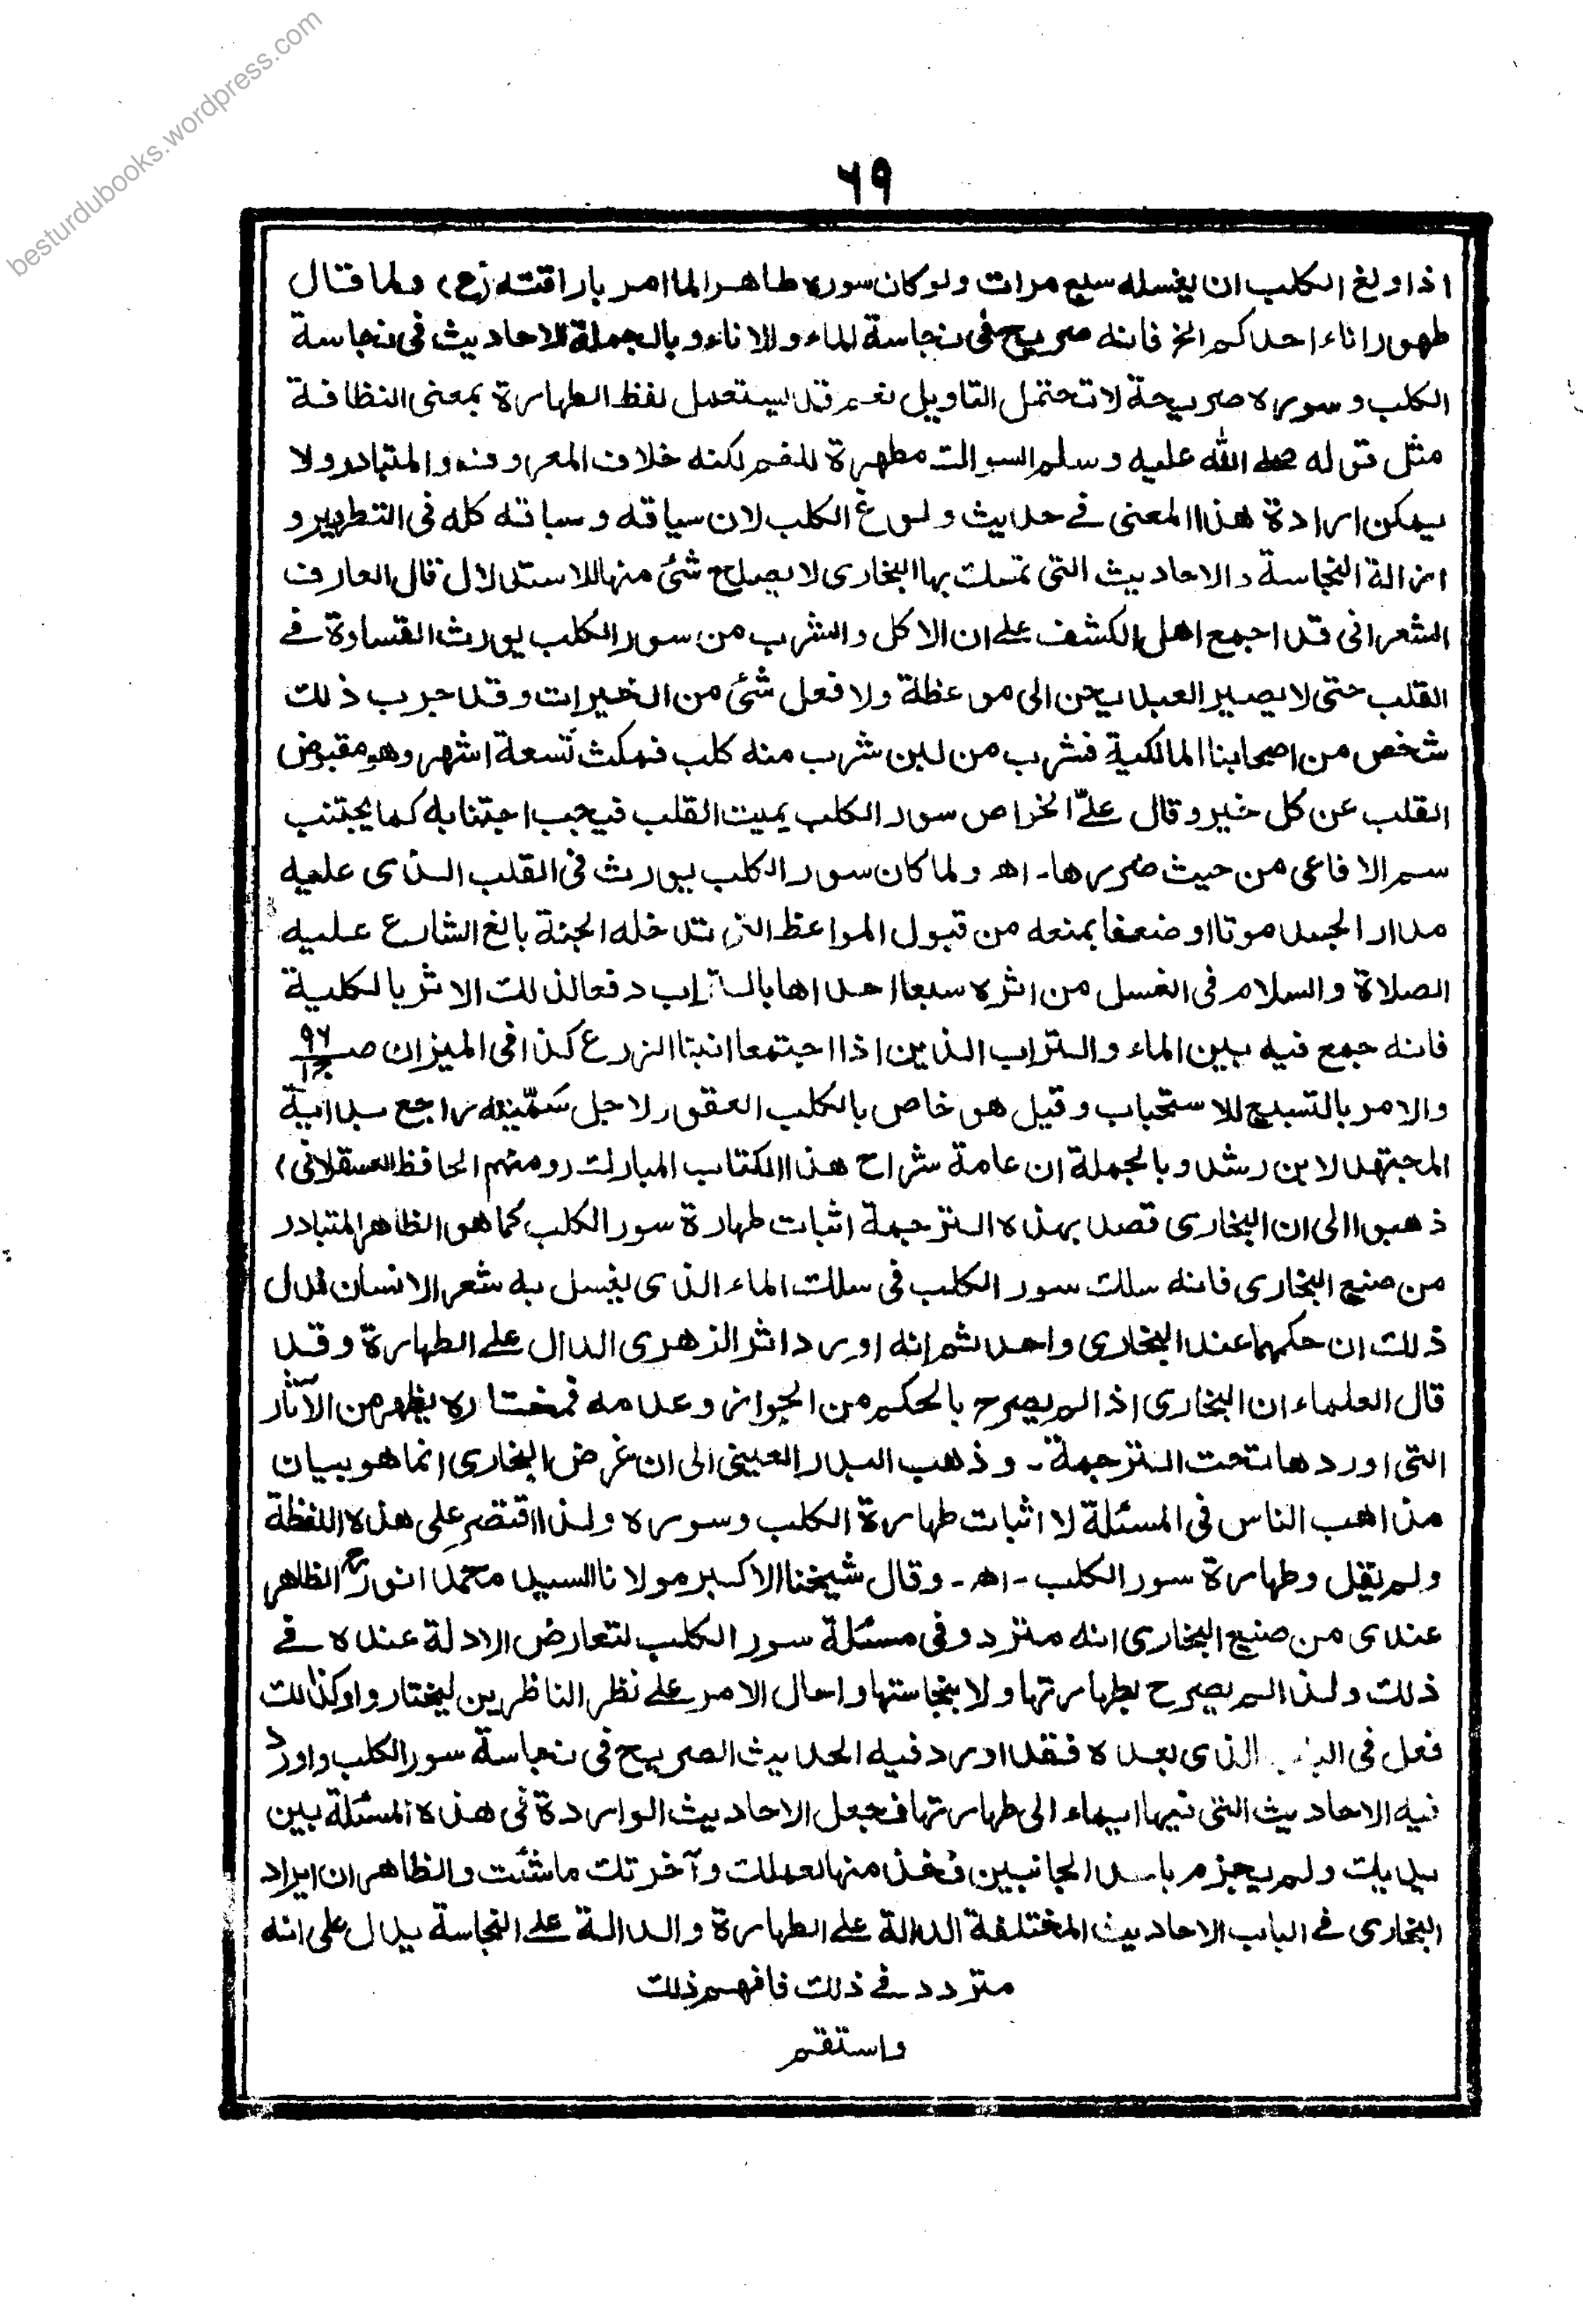 besturdubooks.wordpress.com
٦٩
اذا ولغ الكلب ان يغسله سبع مرات ولو كان سوره طاهرا لما امر باراقته (ع) ولما قال
طهور اناء احدكم الخ فانه صريح فى نجاسة الماء والاناء وبالجملة الاحاديث فى نجاسة
الكلب وسوره صريحة لا تحتمل التاويل نعم قد يستعمل لفظ الطهارة بمعنى النظافة
مثل قوله صلى الله عليه وسلم السواك مطهرة للفم لكنه خلاف المعروف والمتبادر ولا
يمكن ارادة هذا المعنى فى حديث ولوغ الكلب لان سياقه وسباقه كله فى التطهير و
ازالة النجاسة والاحاديث التى تمسك بها البخارى لا يصلح شئ منها للاستدلال قال العارف
الشعرانى قد اجمع اهل الكشف على ان الاكل والشرب من سور الكلب يورث القساوة فى
القلب حتى لا يصير العبد يحن الى موعظة ولا فعل شئ من الخيرات وقد جرب ذلك
شخص من اصحابنا المالكية فشرب من لبن شرب منه كلب فمكث تسعة اشهر وهو مقبوض
القلب عن كل خير وقال علىّ الخواص سور الكلب يميت القلب فيجب اجتنابه كما يجتنب
سم الافاعى من حيث ضررها - اھ ولما كان سور الكلب يورث فى القلب الذى عليه
مدار الجسد موتا او ضعفا يمنعه من قبول المواعظ التى تدخله الجنة بالغ الشارع عليه
الصلاة والسلام فى الغسل من اثره سبعا احداها بالتراب دفعا لذلك الاثر بالكلية
فانه جمع فيه بين الماء والتراب الذين اذا اجتمعا انبتا الزرع كذا فى الميزان صـ ٩٦ ج١
والامر بالتسبيع للاستحباب وقيل هو خاص بالكلب العقور لاجل سمّيته راجع بداية
المجتهد لابن رشد وبالجملة ان عامة شراح هذا الكتاب المبارك (ومنهم الحافظ العسقلانى)
ذهبوا الى ان البخارى قصد بهذه الترجمة اثبات طهارة سور الكلب كما هو الظاهر المتبادر
من صنيع البخارى فانه سلك سور الكلب فى سلك الماء الذى يغسل به شعر الانسان فدل
ذلك ان حكمهما عند البخارى واحد ثم انه اورد اثر الزهرى الدال على الطهارة وقد
قال العلماء ان البخارى اذا لم يصرح بالحكم من الجواز وعدمه فمختاره يظهر من الآثار
التى اوردها تحت الترجمة - وذهب البدر العينى الى ان غرض البخارى انما هو بيان
مذاهب الناس فى المسئلة لا اثبات طهارة الكلب وسوره ولذا اقتصر على هذه اللفظة
ولم يقل وطهارة سور الكلب - اھ - وقال شيخنا الاكبر مولانا السيد محمد انورؒ الظاهر
عندى من صنيع البخارى انه متردد فى مسئلة سور الكلب لتعارض الادلة عنده فى
ذلك ولذا لم يصرح بطهارتها ولا بنجاستها واحال الامر على نظر الناظرين ليختاروا وكذلك
فعل فى الذى بعده فقد اورد فيه الحديث الصريح فى نجاسة سور الكلب واورد
فيه الاحاديث التى فيها ايماء الى طهارتها فجعل الاحاديث الواردة فى هذه المسئلة بين
يديك ولم يجزم باحد الجانبين فخذ منها لعملك وآخرتك ما شئت والظاهر ان ايراد
البخارى فى الباب الاحاديث المختلفة الدالة على الطهارة والدالة على النجاسة يدل على انه
متردد فى ذلك فافهم ذلك
واستقم